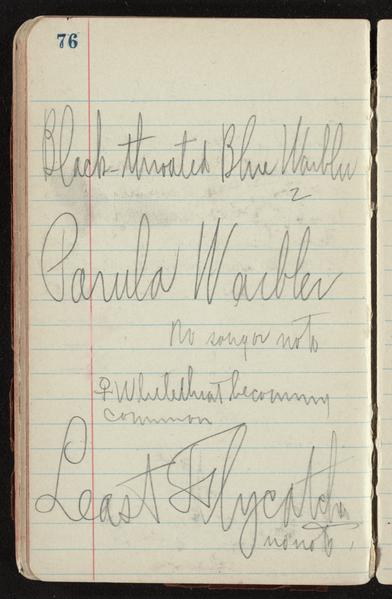 76
Black-throated Blue Warbler
2
Parula Warbler
No song or note
♀ Whitethroat becoming
common
Least Flycatcher
no note.